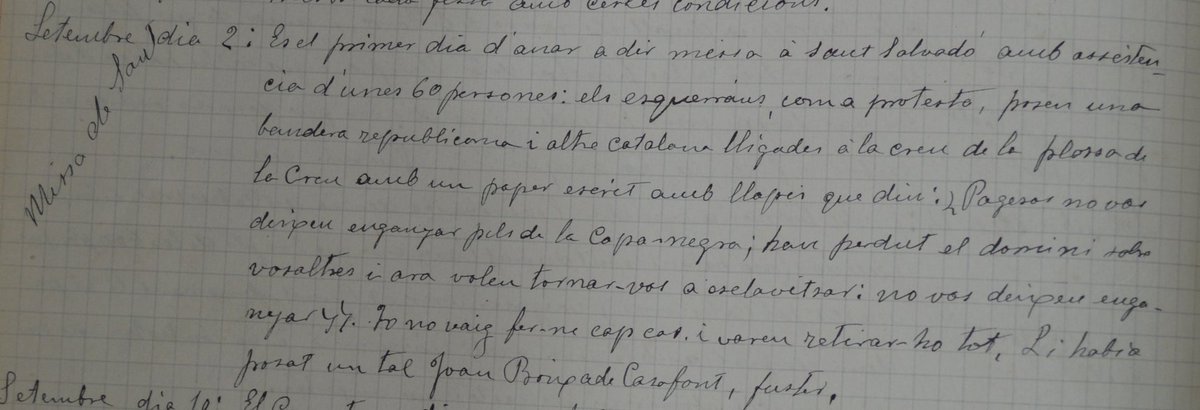 amb certes condicions.
Setembre dia 2: Es el primer dia d'anar a dir missa à Sant Salvadó amb assisten-
Missa de Sant
cia d'unes 60 persones: els esquerrans, com a protesta, posen una
bandera republicana i altre catalana lligades à la creu de la plassa de
la Creu amb un paper escrit amb llapis que diu: "Pagesos no vos
deixeu enganyar pels de la Capa-negra; han perdut el domini sobre
vosaltres i ara volen tornar-vos a esclavitzar: no vos deixeu enga-
nyar". Jo no vaig fer-ne cap cas i varen retirar-ho tot. Li habia
posat un tal Joan Brixa de Casafont, fuster.
Setembre dia 10: El